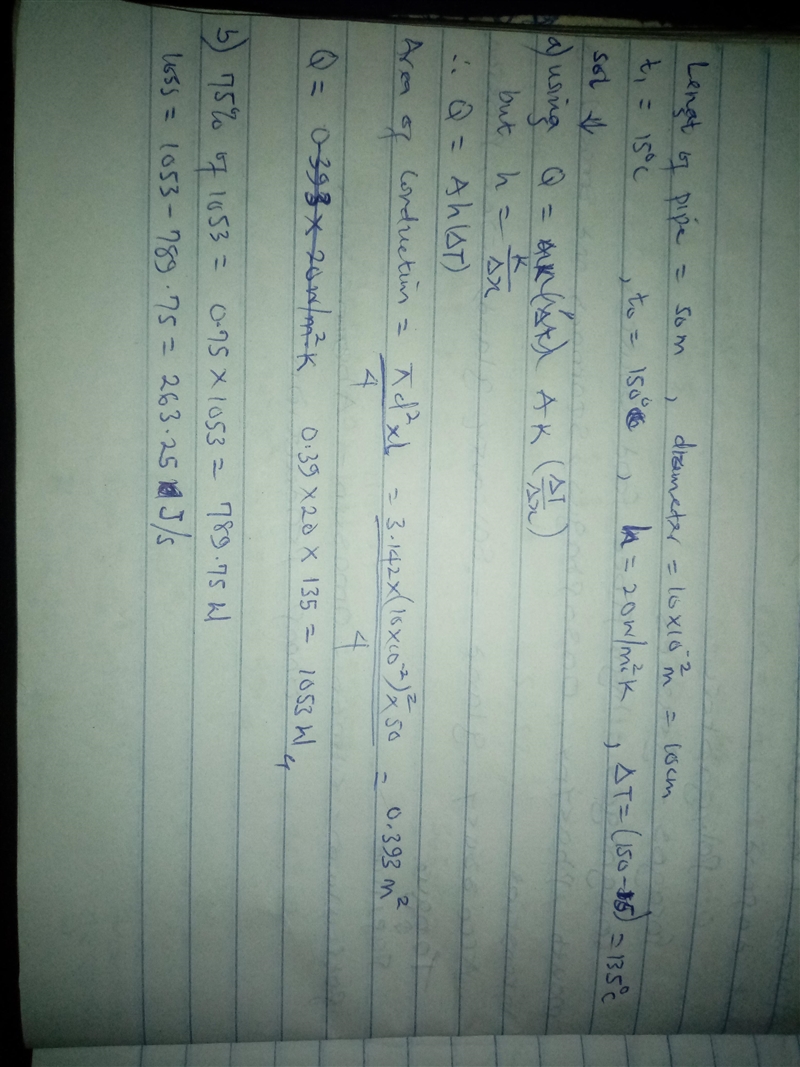 Lengt of pipe = 50m , diameter = 10x10⁻² m = 10cm
t₁ = 15°C , t₀ = 150°C , h = 20W/m²K , ΔT = (150-15) = 135°C
Sol ↓
a) using Q = AK (ΔT/Δx)
but h = K/Δx
∴ Q = Ah(ΔT)
Area of conduction = πd²xL/4 = 3.142x(10x10⁻²)²x50/4 = 0.393m²
Q = 0.393 x 20W/m²K 0.39x20x135 = 1053W
b) 75% of 1053 = 0.75x1053 = 789.75W
loss = 1053-789.75 = 263.25 J/s